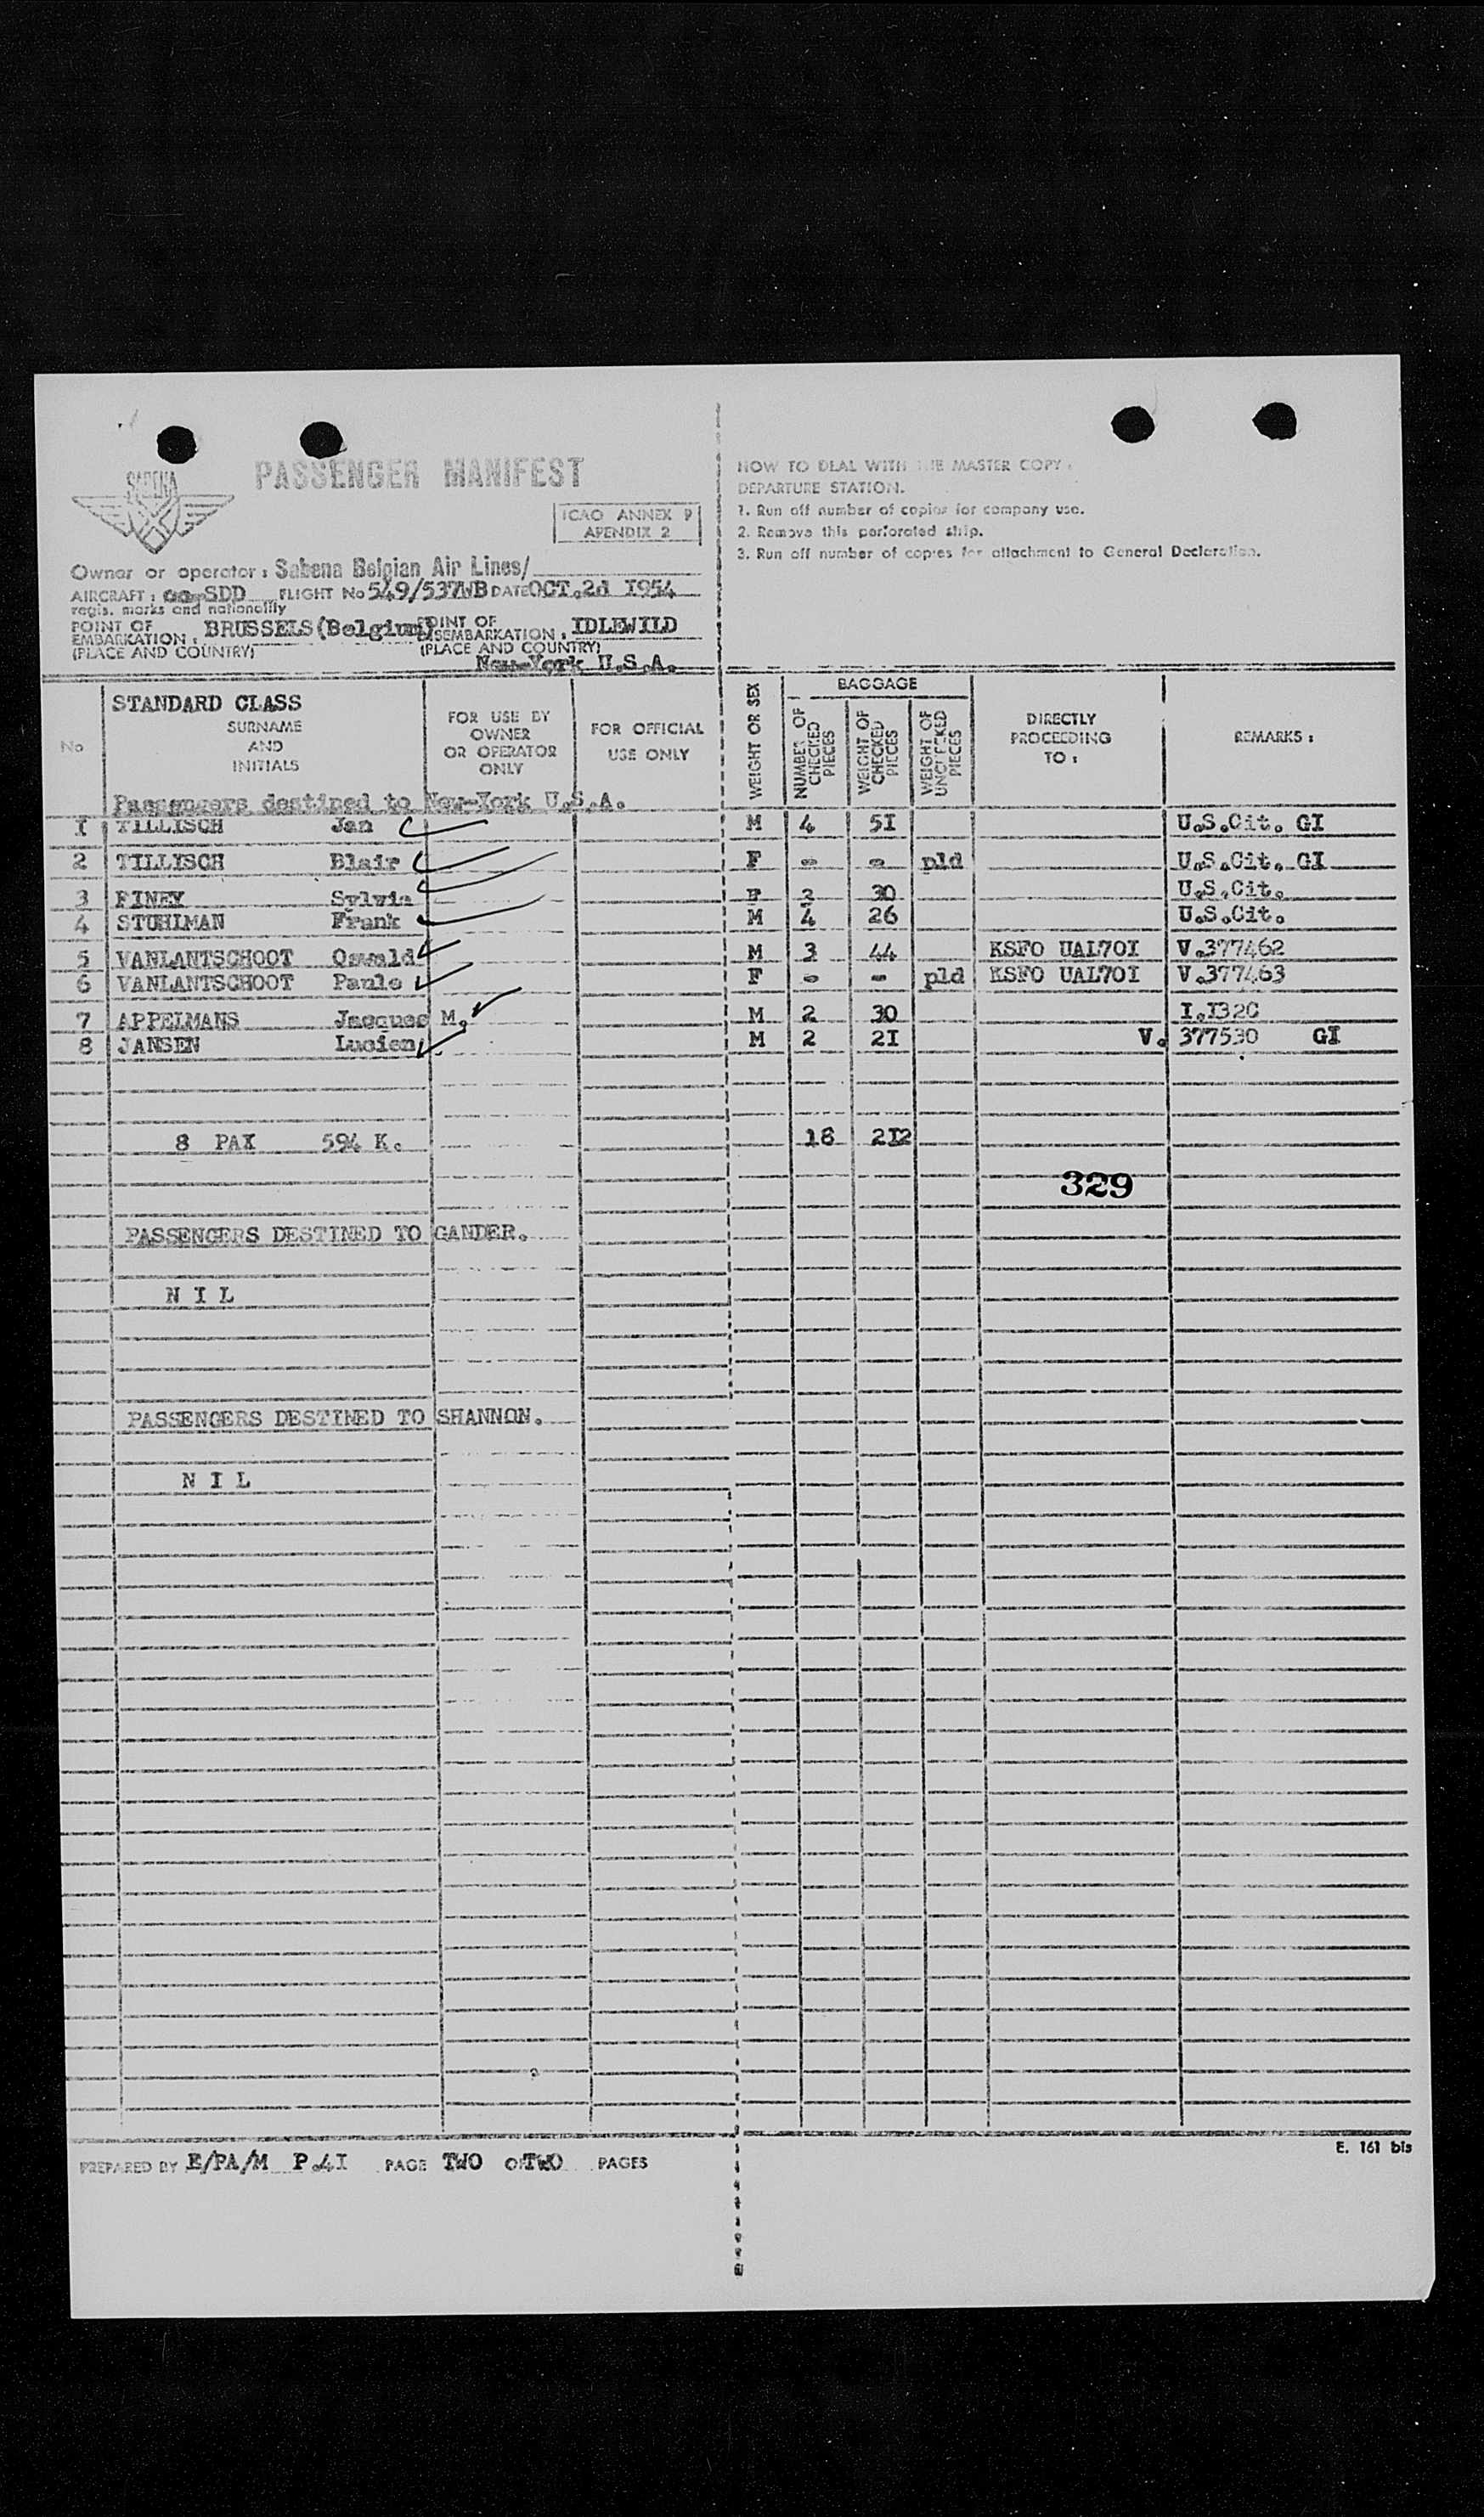 SABENA
PASSENGER MANIFEST
ICAO ANNEX 9
APENDIX 2
Owner or operator : Sabena Belgian Air Lines/
AIRCRAFT : oo-SDD FLIGHT No 549/537WB DATE OCT.2d I954
regis. marks and nationality
POINT OF EMBARKATION : BRUSSELS(Belgium) POINT OF DISEMBARKATION : IDLEWILD
(PLACE AND COUNTRY) (PLACE AND COUNTRY)
New-York U.S.A.
HOW TO DEAL WITH THE MASTER COPY :
DEPARTURE STATION.
1. Run off number of copies for company use.
2. Remove this perforated slip.
3. Run off number of copies for attachment to General Declaration.
No
STANDARD CLASS
SURNAME
AND
INITIALS
FOR USE BY
OWNER
OR OPERATOR
ONLY
FOR OFFICIAL
USE ONLY
WEIGHT OR SEX
BAGGAGE
NUMBER OF CHECKED PIECES
WEIGHT OF CHECKED PIECES
WEIGHT OF UNCHECKED PIECES
DIRECTLY
PROCEEDING
TO :
REMARKS :
Passengers destined to New-York U.S.A.
I TILLISCH Jan M 4 5I U.S.Cit. GI
2 TILLISCH Blair F - - pld U.S.Cit. GI
3 PINEY Sylvia F 2 30 U.S.Cit.
4 STUHLMAN Frank M 4 26 U.S.Cit.
5 VANLANTSCHOOT Oswald M 3 44 KSFO UAL70I V.377462
6 VANLANTSCHOOT Paule F - - pld KSFO UAL70I V.377463
7 APPELMANS Jacques M. M 2 30 I.I320
8 JANSEN Lucien M 2 2I V. 377530 GI
8 PAX 594 K. 18 2I2
329
PASSENGERS DESTINED TO GANDER.
N I L
PASSENGERS DESTINED TO SHANNON.
N I L
E. 161 bis
PREPARED BY E/PA/M P.4I PAGE TWO OF TWO PAGES